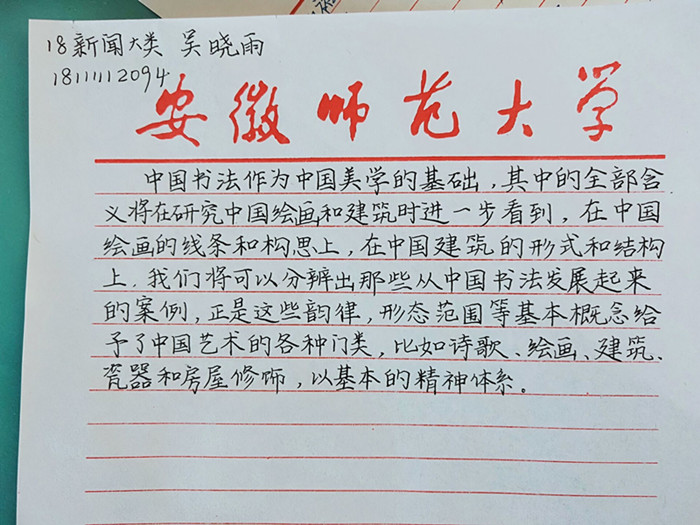 18新闻大类 吴晓雨
1811112094
安徽师范大学
中国书法作为中国美学的基础,其中的全部含
义将在研究中国绘画和建筑时进一步看到,在中国
绘画的线条和构思上,在中国建筑的形式和结构
上,我们将可以分辨出那些从中国书法发展起来
的案例,正是这些韵律,形态范围等基本概念给
予了中国艺术的各种门类,比如诗歌、绘画、建筑、
瓷器和房屋修饰,以基本的精神体系。